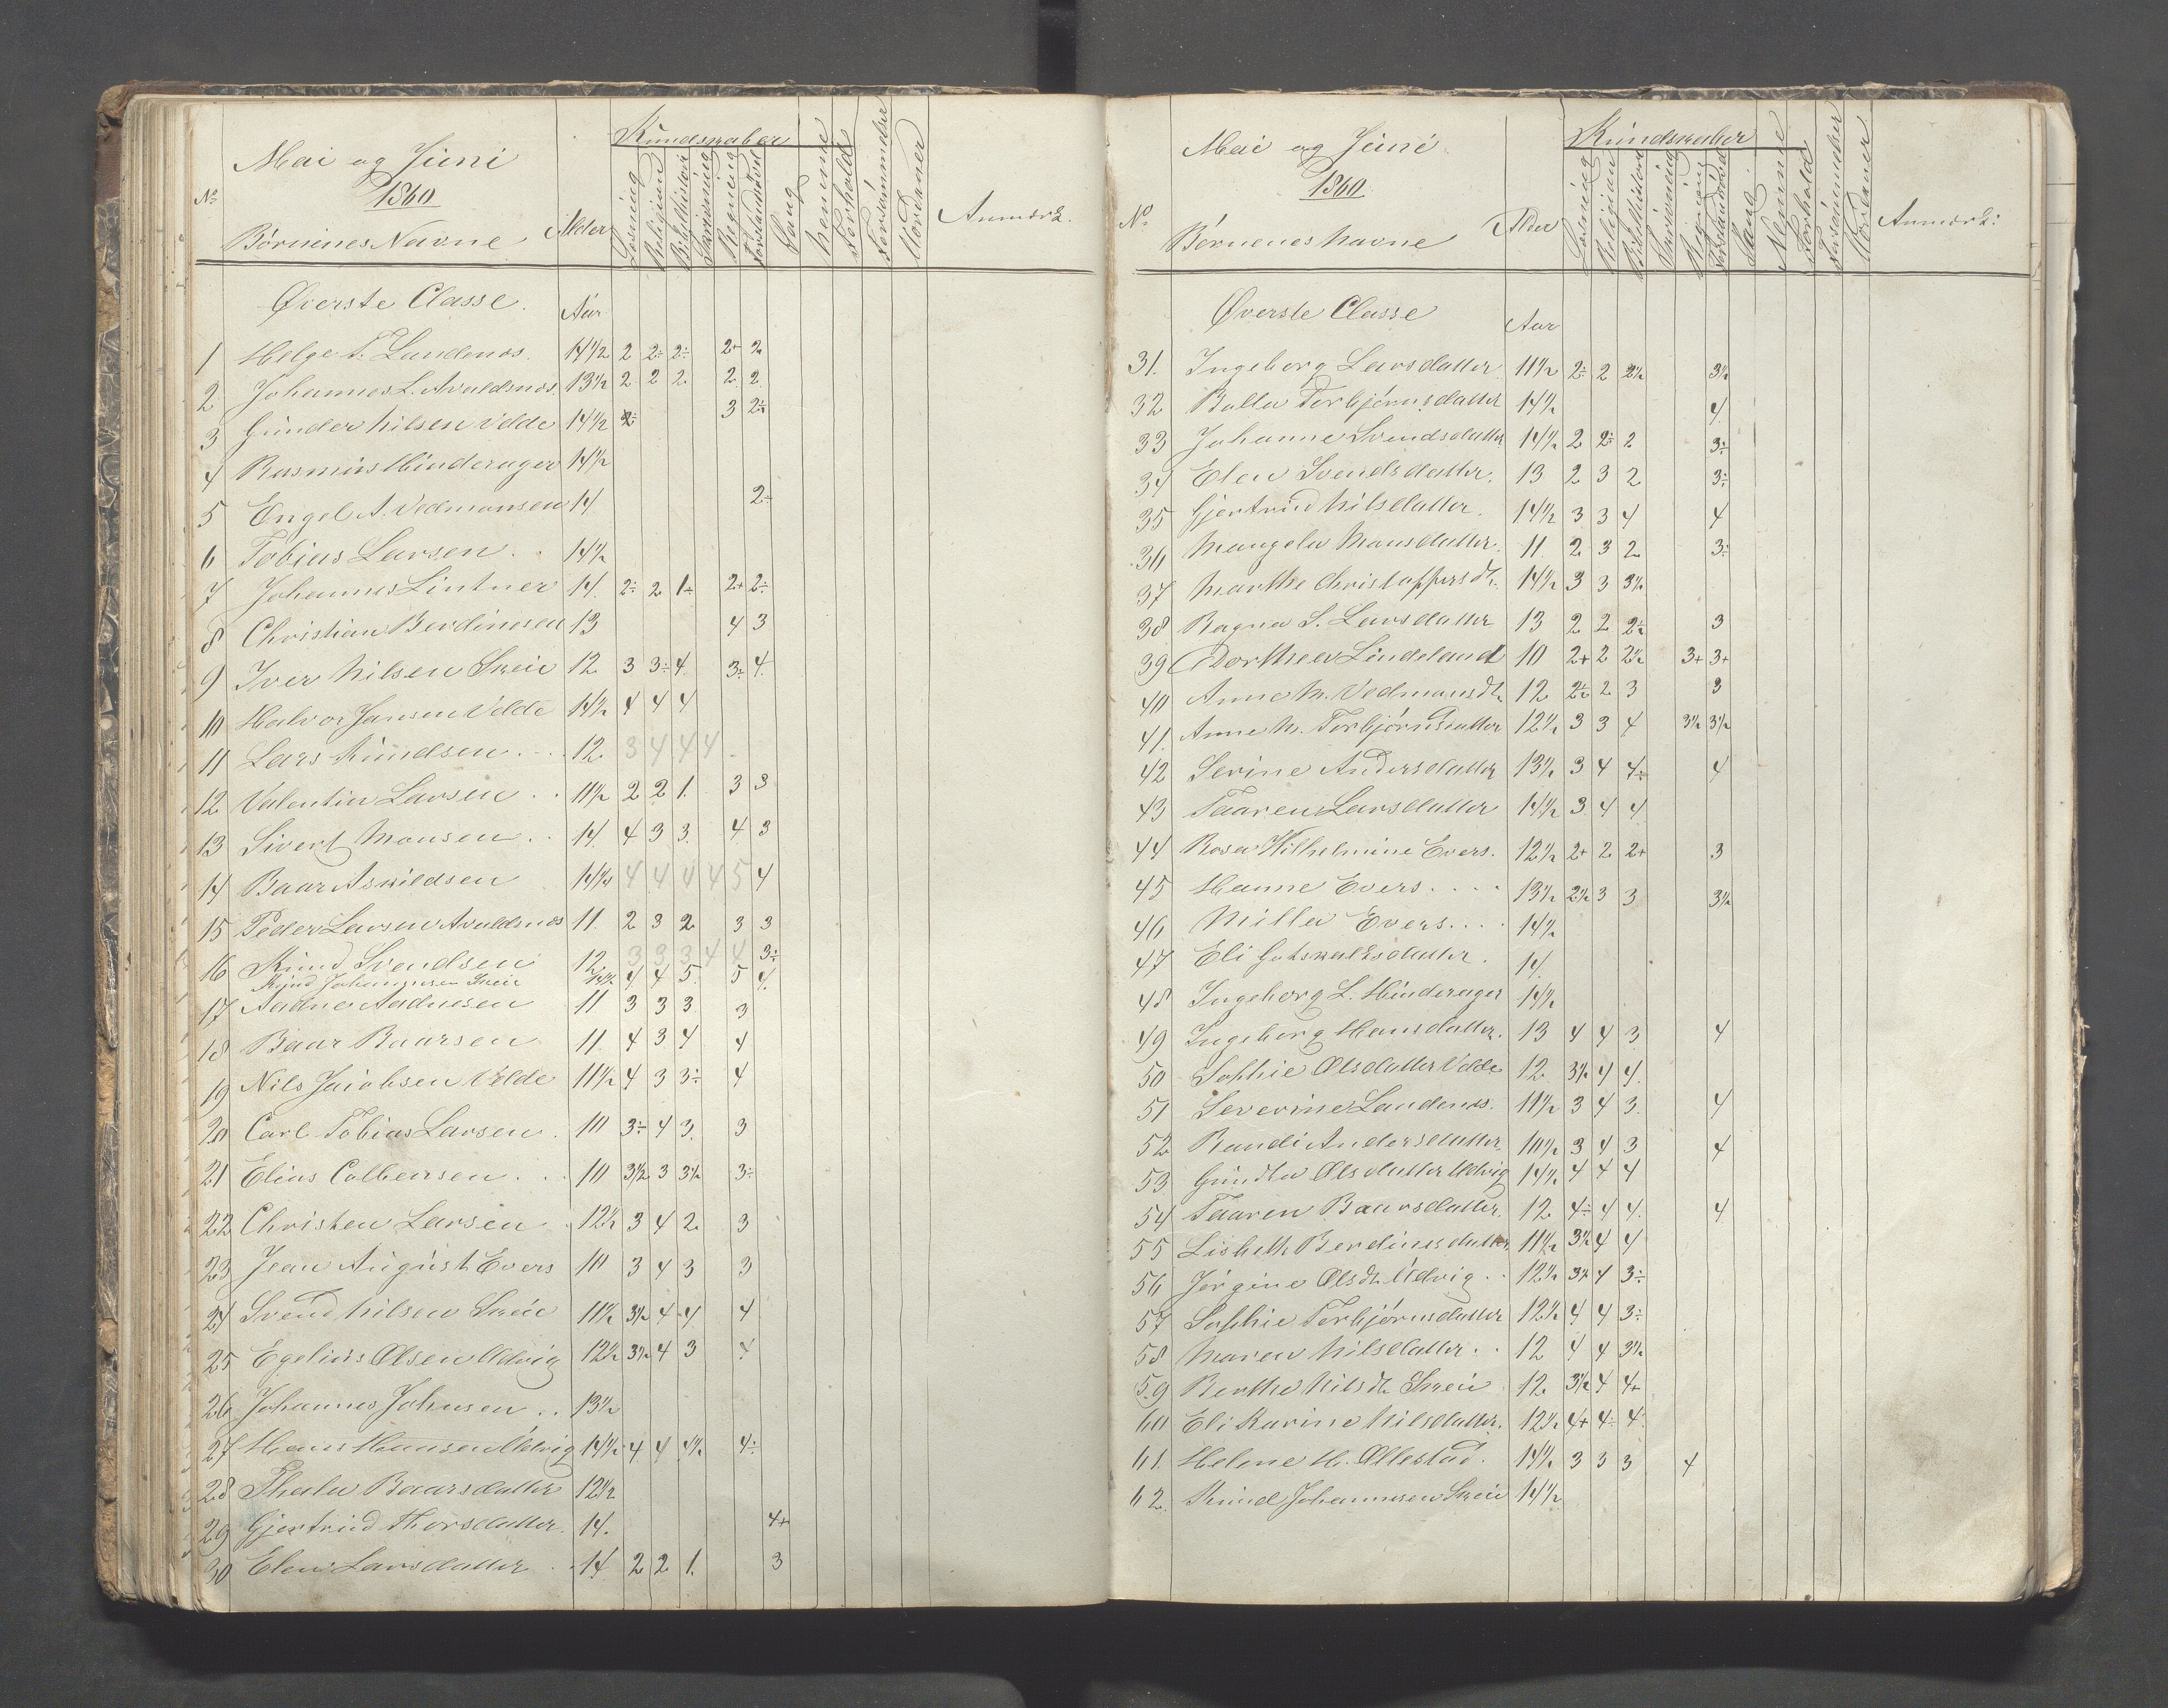 Mai og Juni
1860
No
Børnenes Navne
Alder
Kundskaber
Læsning
Religion
Bibelhistorie
Skrivning
Regning
Forstandsøvel
Sang
Nemme
Forhold
Forsømmelser
Mordaner
Anmærk.
Øverste Classe.
Aar
1 Helge T. Landenæs. 14 1/2 2 2÷ 2÷ 2+ 2
2 Johannes L. Avaldsnæs. 13 1/2 2 2 2 2 2
3 Gunder Nilsen Velde 14 1/2 2÷ 3 2÷
4 Rasmus Hinderager 14 1/2
5 Engel A. Vedmonsen 14 2÷
6 Tobias Larsen 14 1/2
7 Johannes Lintner 14 2÷ 2 1÷ 2+ 2÷
8 Christian Berdinesen 13 4 3
9 Iver Nilsen Skeie 12 3 3÷ 4 3÷ 4
10 Halvor Jansen Velde 14 1/2 4 4 4
11 Lars Knudsen 12 3 4 4 4
12 Valentin Larsen 11 1/2 2 2 1 3 3
13 Sivert Monsen 14 4 3 3 4 3
14 Baar Askildsen 14 1/4 4 4 4 4 5 4
15 Peder Larsen Avaldsnæs 11 2 3 2 3 3
16 Knud Svendsen 12 3 3 3 4 4 3÷
Knud Johannesen Skeie 14 1/2 4 4 5 5 4
17 Aadne Aadnesen 11 3 3 3 3
18 Baar Baarsen 11 4 3 4 4
19 Nils Jacobsen Velde 11 1/2 4 3 3÷ 4
20 Carl Tobias Larsen 10 3÷ 4 3 3
21 Elias Colbensen 10 3 1/2 3 3 1/2 3÷
22 Christen Larsen 12 1/2 3 4 2 3
23 Jean August Evers 10 3 4 3 3
24 Svend Nilsen Skeie 11 1/2 3 1/2 4 4 4
25 Egelius Olsen Udvig 12 1/2 3 1/2 4 3 4
26 Johannes Johnsen 13 1/2
27 Hans Hansen Udvig 14 1/2 4 4 4 1/2 4÷
28 Thala Baarsdatter 12 1/2
29 Gjertrud Thorsdatter 14 4+
30 Elen Larsdatter 14 2 2 1 3
Mai og Juni
1860
No
Børnenes Navne
Alder
Kundskaber
Læsning
Religion
Bibelhistorie
Skrivning
Regning
Forstandsøvel
Sang
Nemme
Forhold
Forsømmelser
Mordaner
Anmærk:
Øverste Classe
Aar
31. Ingeborg Larsdatter 11 1/2 2÷ 2 2 1/2 3 1/2
32 Balla Torbjørnsdatter 14 1/2 4
33 Johanne Svendsdatter 14 1/2 2 2÷ 2 3÷
34 Elen Svendsdatter. 13 2 3 2 3÷
35 Gjertrud Nilsdatter. 14 1/2 3 3 4 4
36 Mangela Monsdatter. 11 2 3 2 3÷
37 Marthe Christoffersdt. 14 1/2 3 3 3 1/2
38 Ragna S. Larsdatter 13 2 2 2÷ 3
39 Dorthea Lindeland 10 2+ 2 2 1/2 3+ 3+
40 Anne M. Vedmonsdt. 12 2÷ 2 3 3
41. Anne M. Torbjørnsdatter 12 1/2 3 3 4 3 1/2 3 1/2
42 Serine Andersdatter 13 1/2 3 4 4÷ 4
43 Taaren Larsdatter 14 1/2 3 4 4
44 Rosa Wilhelmine Evers. 12 1/2 2+ 2 2+ 3
45 Hanne Evers 13 1/2 2 1/2 3 3 3 1/2
46 Milla Evers 14 1/2
47 Eli Gotskalksdatter. 14
48 Ingeborg L. Hinderager 14 1/2
49 Ingeborg Hansdatter. 13 4 4 3 4
50 Sophie Olsdatter Velde 12 3 1/2 4 4
51 Severine Landenæs. 11 1/2 3 4 3 4
52 Randi Andersdatter 10 1/2 3 4 3 4
53 Gundla Olsdatter Udvig 14 1/2 4 4 4
54 Taaren Baarsdatter. 12 4÷ 4 4 4
55 Lisbeth Berdinesdatter 11 1/2 3 1/2 4 4
56 Jørgine Olsdt. Udvig 12 1/2 3 1/2 4 3÷
57 Sophie Torbjørnsdatter 12 1/2 4 4 3÷
58 Maren Nilsdatter 12 4 4 3 1/2
59 Berthe Nilsdt. Skeie 12 3 1/2 4 4+
60 Eli Karine Nilsdatter. 12 1/2 4+ 4÷ 4
61. Helene H. Ollestad. 14 1/2 3 3 3 4
62. Knud Johannesen Skeie 14 1/2